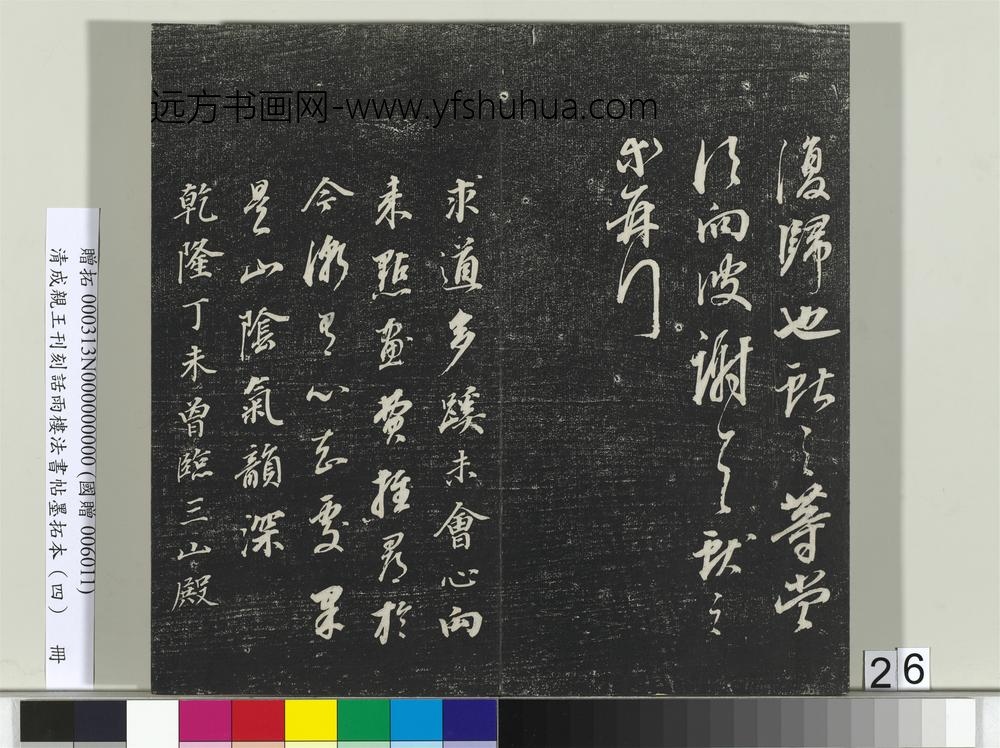 復歸也獻之等當
須向彼謝之獻之
再行
求道多蹊未會心向
来點畫費推尋於
今漸心處果
是山陰氣韻深
乾隆丁未曾臨三山殿
远方书画网-www.yfshuhua.com
贈拓 000313N000000000(國贈 006011)
清成親王刊刻話雨樓法書帖墨拓本(四) 冊
26